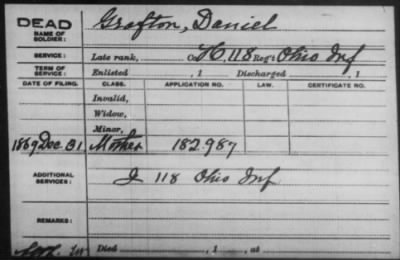 DEAD Grafton, Daniel
NAME OF SOLDIER:
SERVICE: Late rank, Co. H, 118 Reg't Ohio Inf
TERM OF SERVICE: Enlisted , 1 Discharged , 1
DATE OF FILING. CLASS. APPLICATION NO. LAW. CERTIFICATE NO.
Invalid,
Widow,
Minor,
1869 Dec 31 Mother 182.987
ADDITIONAL SERVICES: I 118 Ohio Inf
REMARKS:
Died , 1 , at